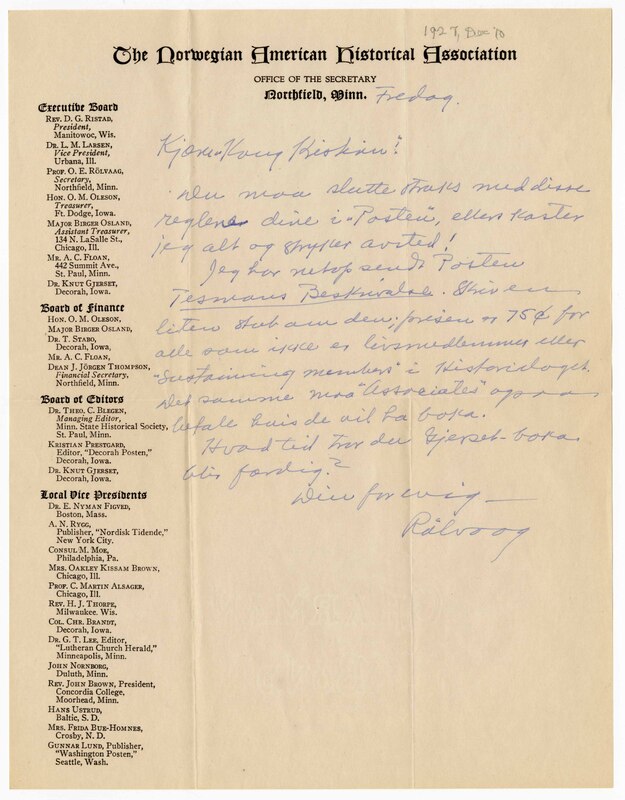 1927, Dec 10
The Norwegian American Historical Association
OFFICE OF THE SECRETARY
Northfield, Minn. Fredag.
Executive Board
REV. D. G. RISTAD,
President,
Manitowoc, Wis.
DR. L. M. LARSEN,
Vice President,
Urbana, Ill.
PROF. O. E. RÖLVAAG,
Secretary,
Northfield, Minn.
HON. O. M. OLESON,
Treasurer,
Ft. Dodge, Iowa.
MAJOR BIRGER OSLAND,
Assistant Treasurer,
134 N. LaSalle St.,
Chicago, Ill.
MR. A. C. FLOAN,
442 Summit Ave.,
St. Paul, Minn.
DR. KNUT GJERSET,
Decorah, Iowa.
Board of Finance
HON. O. M. OLESON,
MAJOR BIRGER OSLAND,
DR. T. STABO,
Decorah, Iowa,
MR. A. C. FLOAN,
DEAN J. JÖRGEN THOMPSON,
Financial Secretary,
Northfield, Minn.
Board of Editors
DR. THEO. C. BLEGEN,
Managing Editor,
Minn. State Historical Society,
St. Paul, Minn.
KRISTIAN PRESTGARD,
Editor, "Decorah Posten,"
Decorah, Iowa.
DR. KNUT GJERSET,
Decorah, Iowa.
Local Vice Presidents
DR. E. NYMAN FIGVED,
Boston, Mass.
A. N. RYGG,
Publisher, "Nordisk Tidende,"
New York City.
CONSUL M. MOE,
Philadelphia, Pa.
MRS. OAKLEY KISSAM BROWN,
Chicago, Ill.
PROF. C. MARTIN ALSAGER,
Chicago, Ill.
REV. H. J. THORPE,
Milwaukee. Wis.
COL. CHR. BRANDT,
Decorah, Iowa.
DR. G. T. LEE, Editor,
"Lutheran Church Herald,"
Minneapolis, Minn.
JOHN NORNBORG,
Duluth, Minn.
REV. JOHN BROWN, President,
Concordia College,
Moorhead, Minn.
HANS USTRUD,
Baltic, S. D.
MRS. FRIDA BUE-HOMNES,
Crosby, N. D.
GUNNAR LUND, Publisher,
"Washington Posten,"
Seattle, Wash.
Kjære Kong Kristian!
Du maa slutte straks med disse
reglene dine i "Posten", ellers kaster
jeg alt og stryker avsted!
Jeg har netop sendt Posten
Tesmans Beskrivelse. Skriv en
liten stub om den; prisen er 75¢ for
alle som ikke er livsmedlemmer eller
"Sustaining members" i Historielaget.
Det samme maa "Associates" ogsaa
betale hvis de vil ha boka.
Hvad tid tror du Gjerset-boka
blir færdig?
Din for evig—
Rölvaag